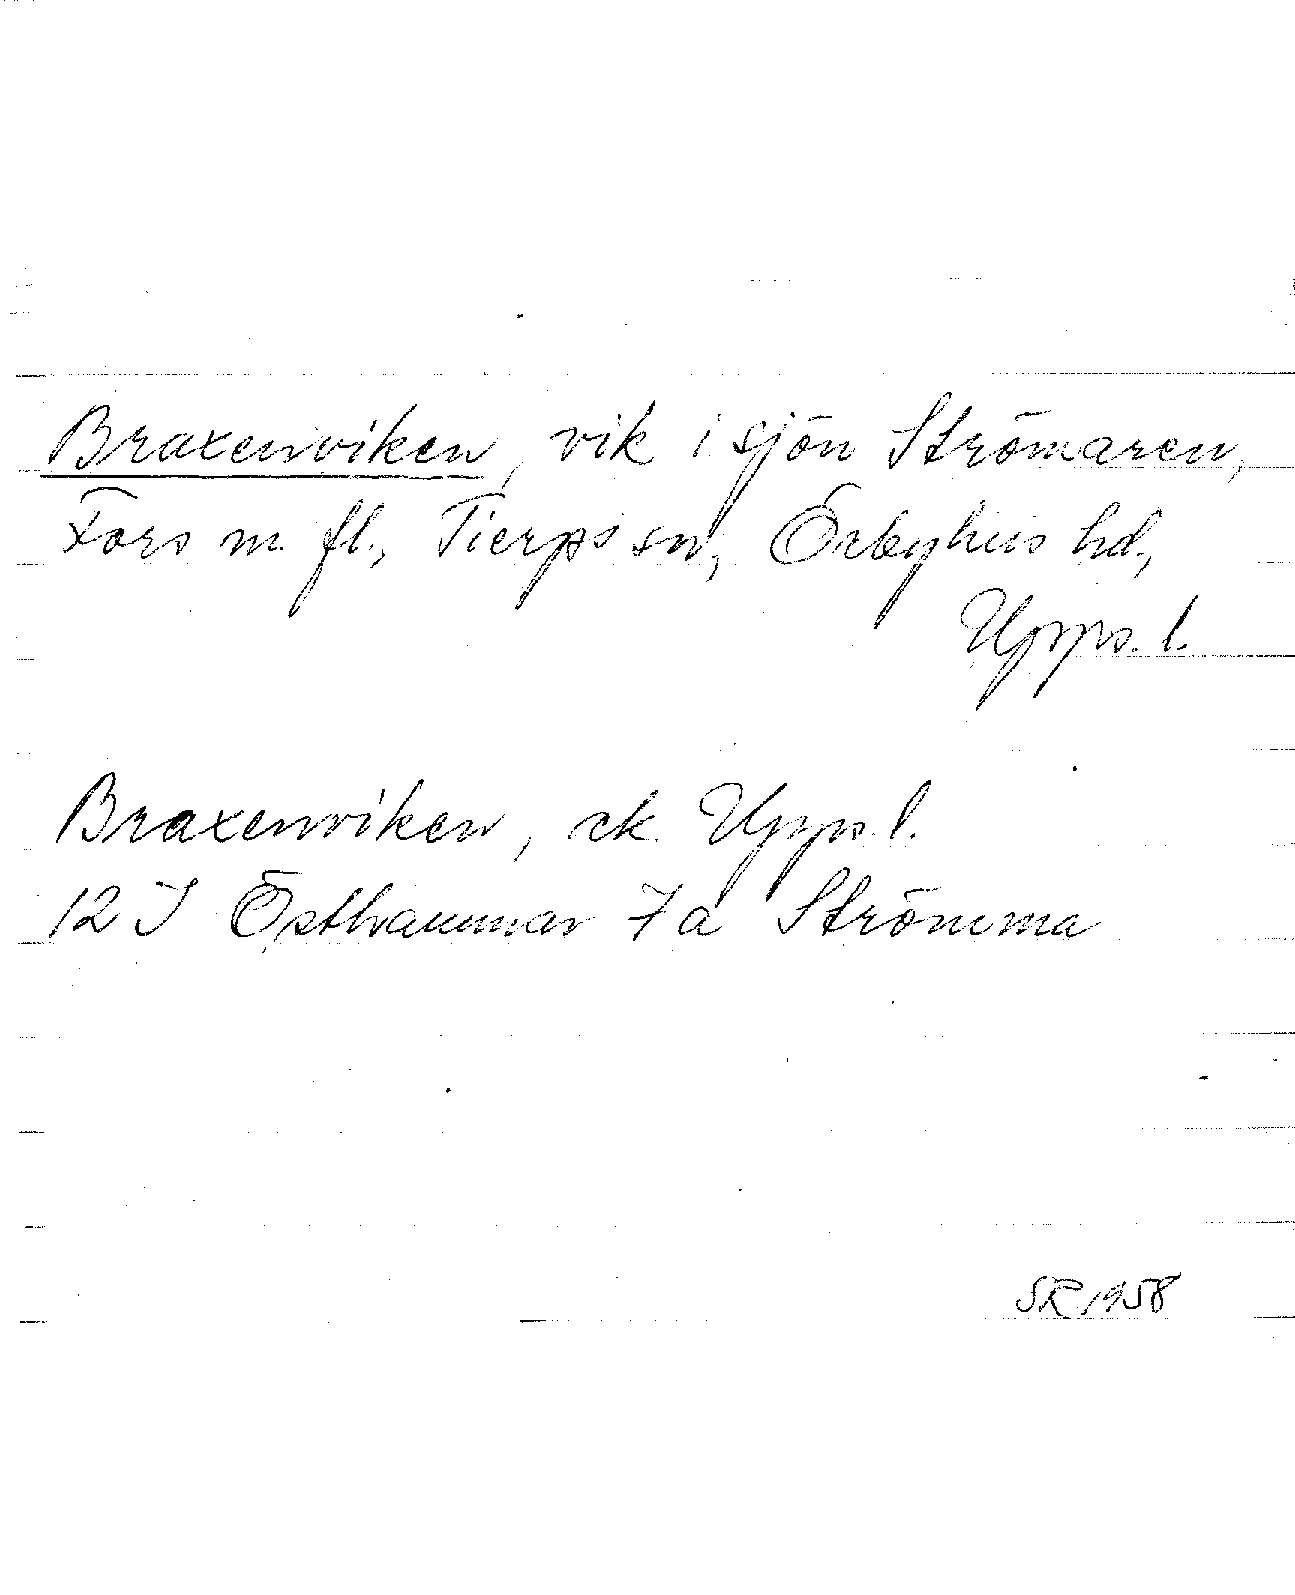 Braxenviken, vik i sjön Strömaren,
Fors m. fl., Tierps sn, Örbyhus hd.,
Upps. l.
Braxenviken, ek. Upps. l.
12 I Östhammar 7 a Strömma
SR 1958